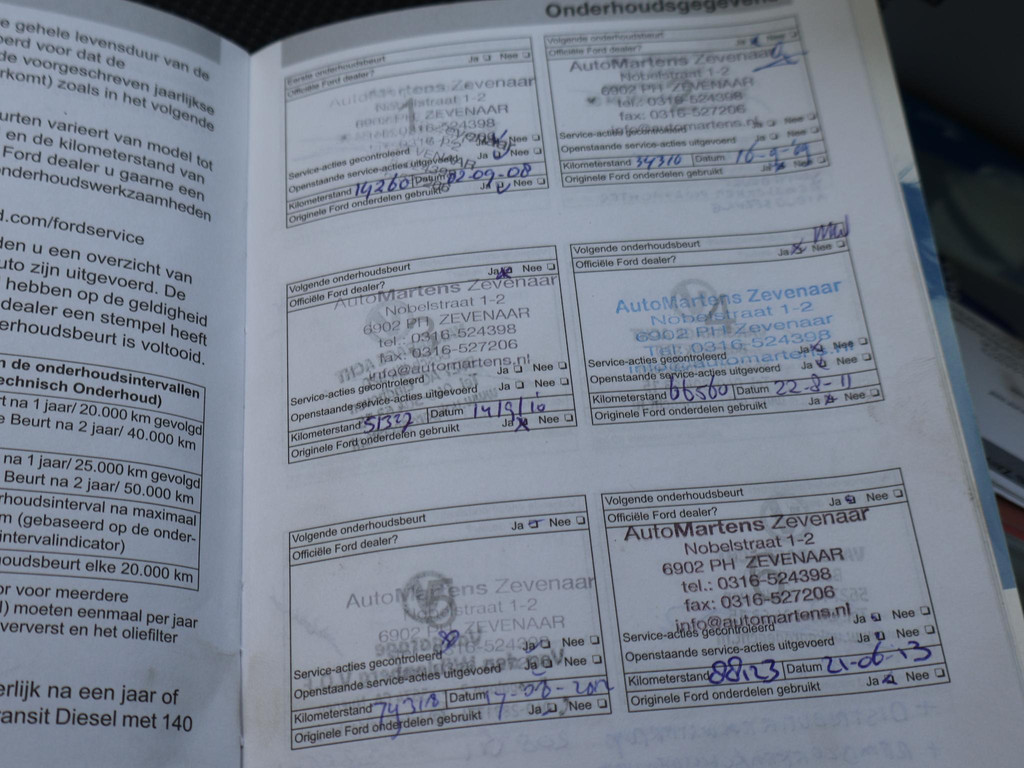 e gehele levensduur van de
oerd voor dat de
de voorgeschreven jaarlijkse
rkomt) zoals in het volgende
urten varieert van model tot
en de kilometerstand van
Ford dealer u gaarne een
onderhoudswerkzaamheden
d.com/fordservice
den u een overzicht van
uto zijn uitgevoerd. De
hebben op de geldigheid
dealer een stempel heeft
erhoudsbeurt is voltooid.
n de onderhoudsintervallen
echnisch Onderhoud)
rt na 1 jaar/ 20.000 km gevolgd
e Beurt na 2 jaar/ 40.000
km
na 1 jaar/ 25.000 km gevolgd
Beurt na 2 jaar/ 50.000 km
rhoudsinterval na maximaal
m (gebaseerd op de onder-
intervalindicator)
houdsbeurt elke 20.000 km
or voor meerdere
l) moeten eenmaal per jaar
ververst en het oliefilter
erlijk na een jaar of
ransit Diesel met 140
Onderhoudsgegevens
Eerste onderhoudsbeurt
Officiële Ford dealer? Ja Nee
AutoMartens Zevenaar
Nobelstraat 1-2
6902 PH ZEVENAAR
0316-524398
Service-acties gecontroleerd Ja Nee
Openstaande service-acties uitgevoerd Ja Nee
Kilometerstand 14260 Datum 02-09-08
Originele Ford onderdelen gebruikt Ja Nee
Volgende onderhoudsbeurt
Officiële Ford dealer? Ja Nee
AutoMartens Zevenaar
Nobelstraat 1-2
6902 PH ZEVENAAR
tel.: 0316-524398
fax: 0316-527206
info@automartens.nl
Service-acties gecontroleerd Ja Nee
Openstaande service-acties uitgevoerd Ja Nee
Kilometerstand 34310 Datum 16-9-09
Originele Ford onderdelen gebruikt Ja Nee
Volgende onderhoudsbeurt
Officiële Ford dealer? Ja Nee
AutoMartens Zevenaar
Nobelstraat 1-2
6902 PH ZEVENAAR
tel.: 0316-524398
fax: 0316-527206
info@automartens.nl
Service-acties gecontroleerd Ja Nee
Openstaande service-acties uitgevoerd Ja Nee
Kilometerstand 51327 Datum 14/9/10
Originele Ford onderdelen gebruikt Ja Nee
Volgende onderhoudsbeurt
Officiële Ford dealer? Ja Nee
AutoMartens Zevenaar
Nobelstraat 1-2
6902 PH Zevenaar
Tel.: 0316-524398
info@automartens.nl
Service-acties gecontroleerd Ja Nee
Openstaande service-acties uitgevoerd Ja Nee
Kilometerstand 66560 Datum 22-8-11
Originele Ford onderdelen gebruikt Ja Nee
Volgende onderhoudsbeurt
Officiële Ford dealer? Ja Nee
AutoMartens Zevenaar
Nobelstraat 1-2
6902 PH ZEVENAAR
Service-acties gecontroleerd Ja Nee
Openstaande service-acties uitgevoerd Ja Nee
Kilometerstand 74318 Datum 17-08-2012
Originele Ford onderdelen gebruikt Ja Nee
Volgende onderhoudsbeurt
Officiële Ford dealer? Ja Nee
AutoMartens Zevenaar
Nobelstraat 1-2
6902 PH ZEVENAAR
tel.: 0316-524398
fax: 0316-527206
info@automartens.nl
Service-acties gecontroleerd Ja Nee
Openstaande service-acties uitgevoerd Ja Nee
Kilometerstand 88123 Datum 21-06-13
Originele Ford onderdelen gebruikt Ja Nee